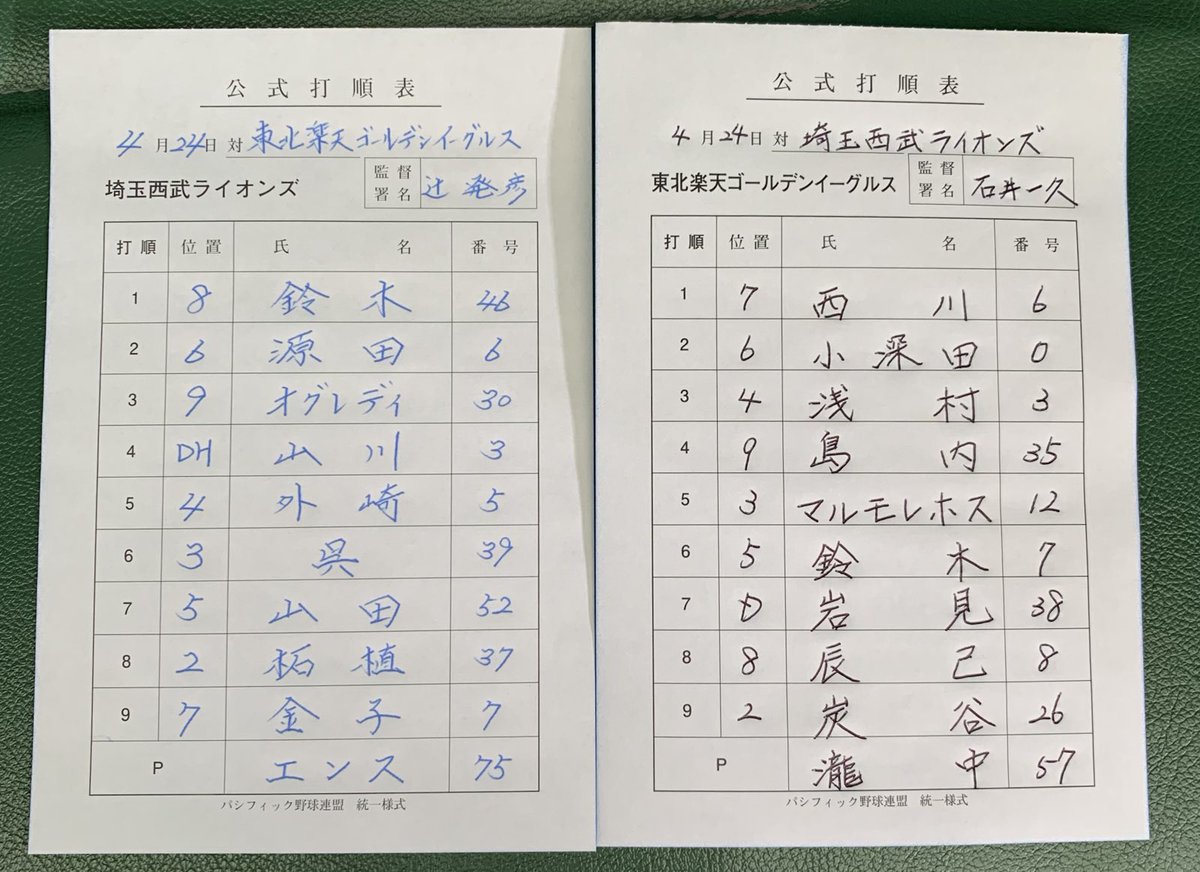 公式打順表
4月24日 対 東北楽天ゴールデンイーグルス
埼玉西武ライオンズ 監督署名 辻 発彦
打順 位置 氏名 番号
1 8 鈴木 46
2 6 源田 6
3 9 オグレディ 30
4 DH 山川 3
5 4 外崎 5
6 3 呉 39
7 5 山田 52
8 2 柘植 37
9 7 金子 7
P エンス 75
パシフィック野球連盟 統一様式
公式打順表
4月24日 対 埼玉西武ライオンズ
東北楽天ゴールデンイーグルス 監督署名 石井一久
打順 位置 氏名 番号
1 7 西川 6
2 6 小深田 0
3 4 浅村 3
4 9 島内 35
5 3 マルモレホス 12
6 5 鈴木 7
7 D 岩見 38
8 8 辰己 8
9 2 炭谷 26
P 瀧中 57
パシフィック野球連盟 統一様式